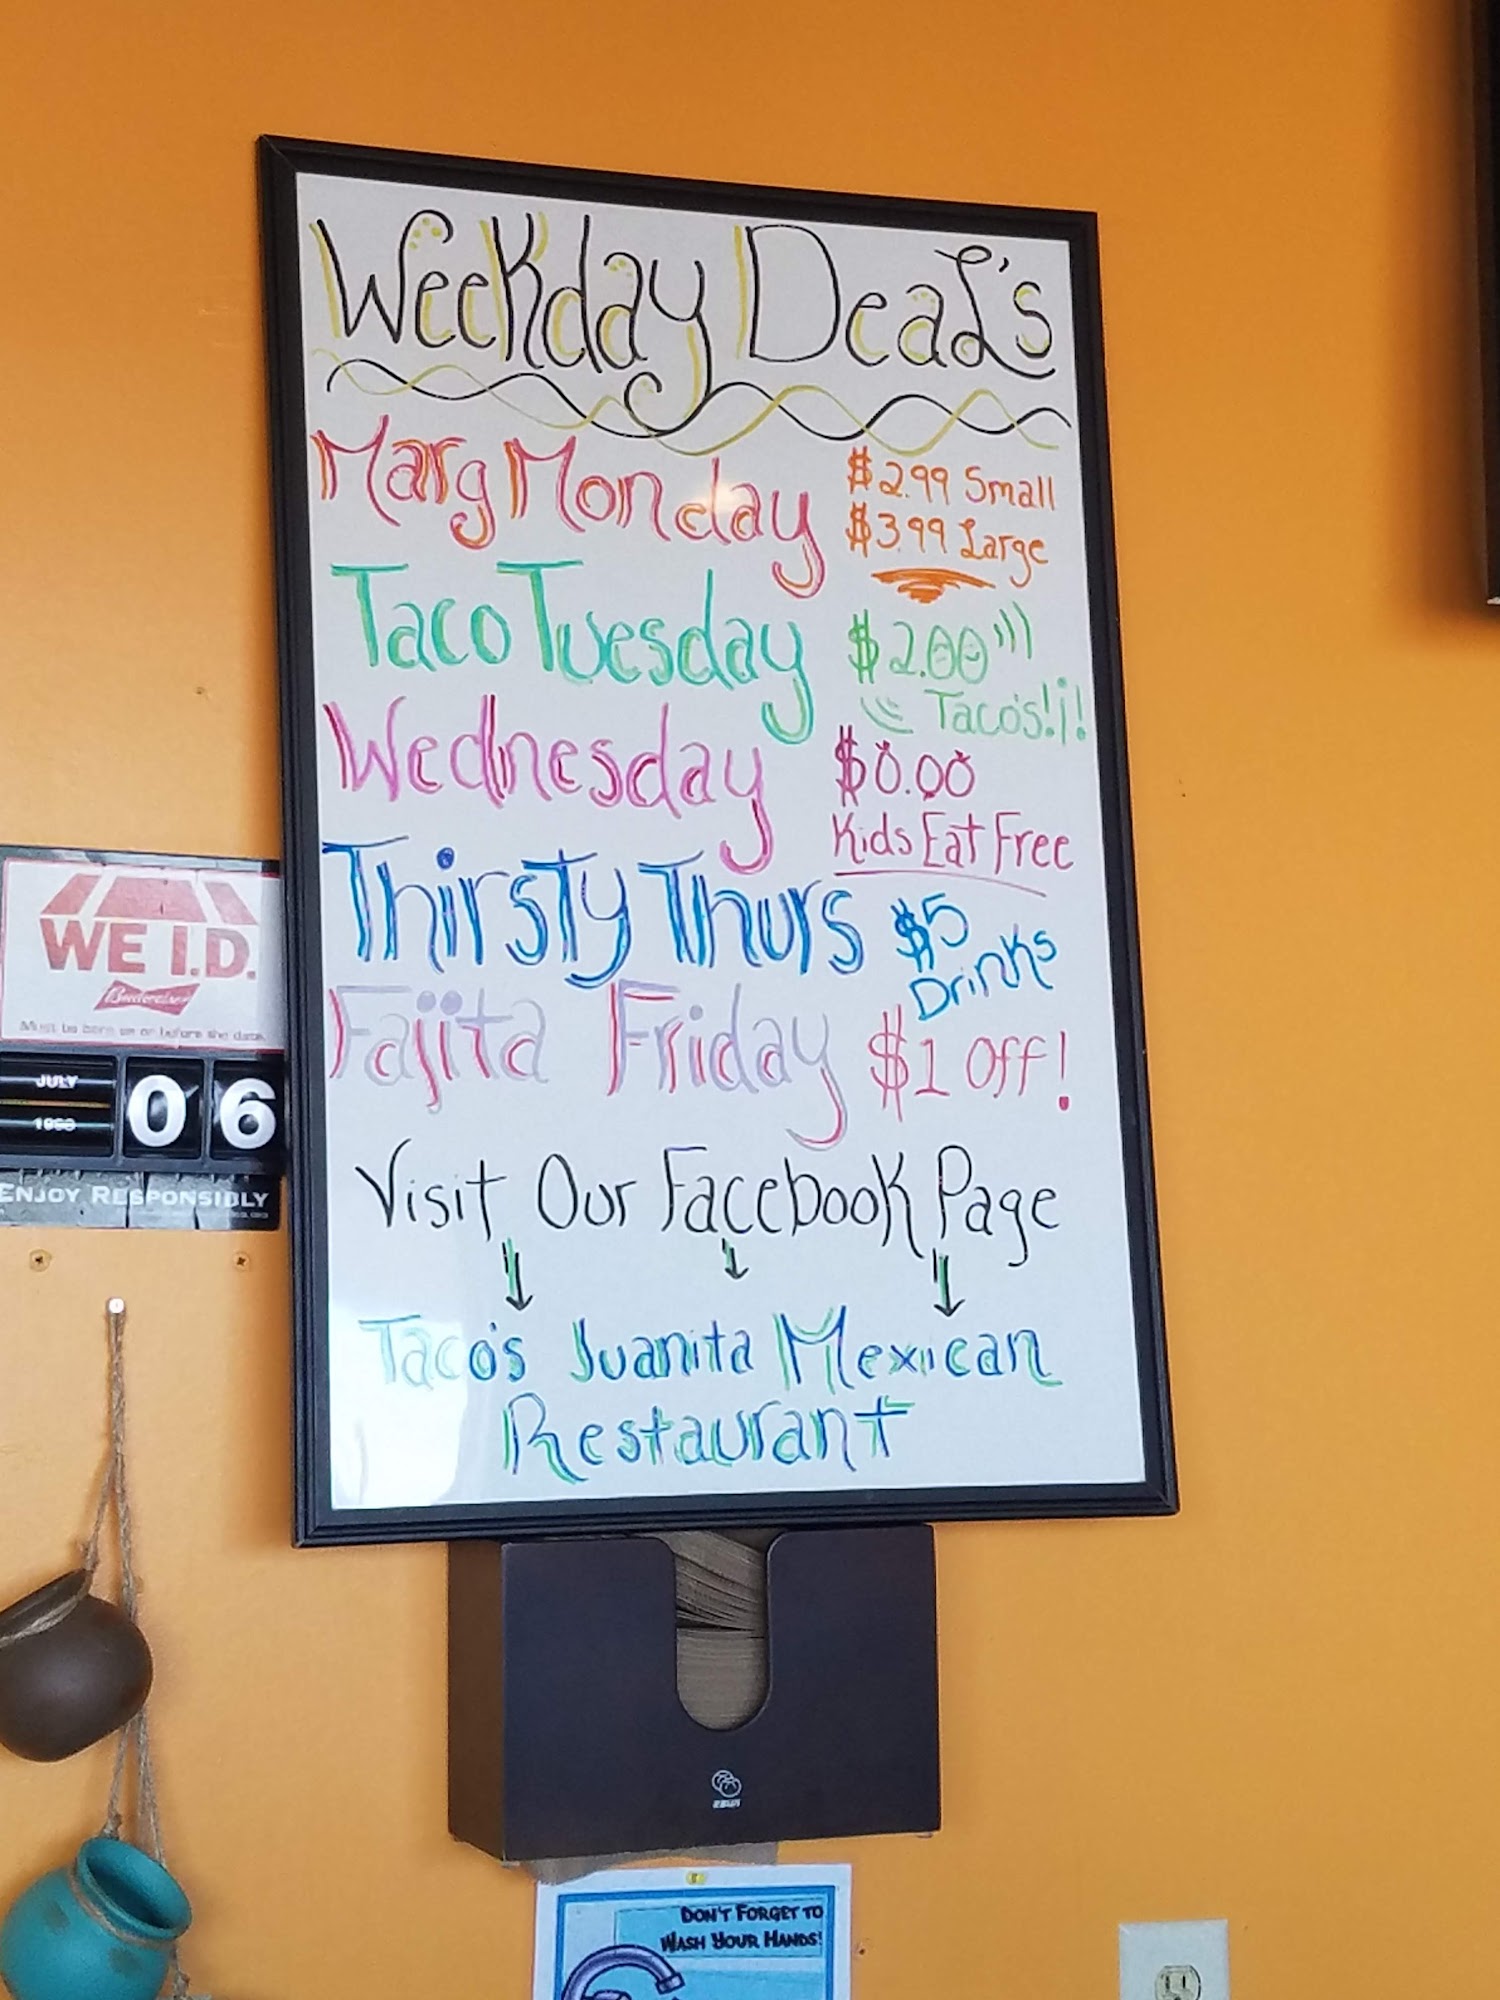 Weekday Deal's
Marg Monday $2.99 Small
$3.99 Large
Taco Tuesday $2.00
Taco's!¡!
Wednesday $0.00
Kids Eat Free
Thirsty Thurs $5
Drinks
Fajita Friday $1 Off!
Visit Our Facebook Page
Taco's Juanita Mexican
Restaurant
WE I.D.
Budweiser
Must be born on or before the date
JULY 06
ENJOY RESPONSIBLY
DON'T FORGET TO
WASH YOUR HANDS!